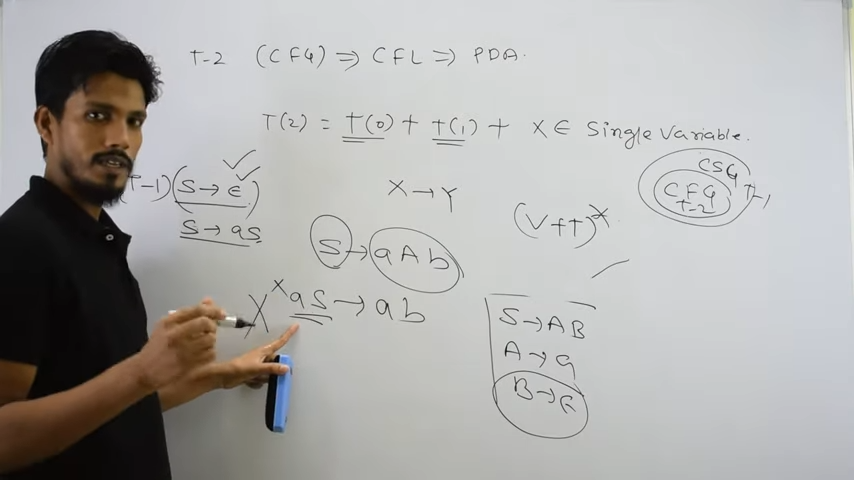 T-2 (CFG) ⇒ CFL ⇒ PDA.
T(2) = T(0) + T(1) + X ∈ Single Variable.
(T-1) (S → ε)
S → aS
X → Y
(V+T)*
CSG T-1
CFG
T-2
S → aAb
X aS → ab
S → AB
A → a
B → ε